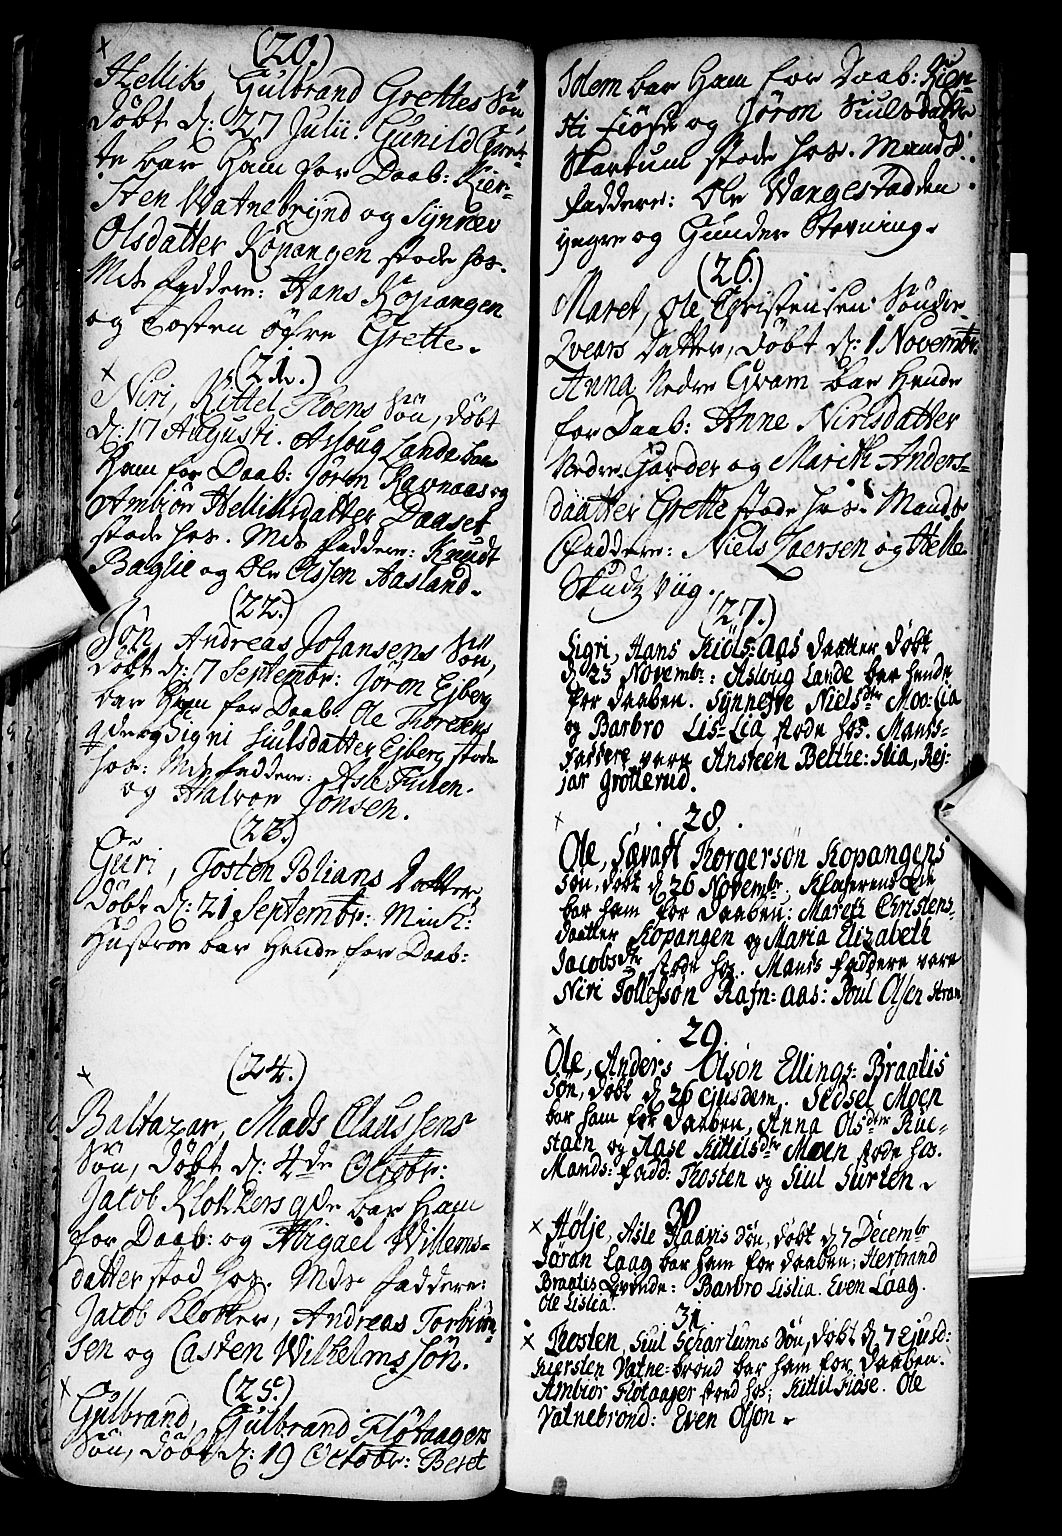 (20.)
Hellik, Gulbrand Grettes Søn
døbt d: 27 Julii. Gunild Gret-
te bar Ham for Daab: Kier-
sten Watnebrynd og Synnev
Olsdatter Kopangen stode hos.
Mds faddere: Hans Kopangen
og Tosten øfre Grette.
(21de.)
Niri, Kittel Floens Søn, døbt
d: 17 Augusti. Asloug Landa bar
Ham for Daab: Jøron Ravnaas og
Ambiør Helliksdatter Daaset
stode hos. Mds faddere: Knudt
Baglie og Ole Olssen Aasland.
(22.)
Jon, Andreas Johansens Søn,
døbt d: 7 Septembr: Jøron Ejberg
bar Ham for Daab. Ole Thoresens
qde og Signi Siulsdatter Ejberg stode
hos: Mds faddere: Asle Fulen.
og Halvor Jonsen.
(23.)
Guri, Tosten Blians Datter,
døbt d: 21 Septembr: Min K:
Hustroe bar Hende for Daab:
(24.)
Baltazar, Mads Claussens
Søn, døbt d: 4de Octobr:
Jacob Klokkers qde bar Ham
for Daab: og Abigael Willems-
datter stod hos. Mds faddere:
Jacob Klokker, Andreas Torbiørn-
sen og Casten Wilhelmssøn.
(25.)
Gulbrand, Gulbrand Fløtaagers
Søn, døbt d: 19 Octobr: Beret
Idem bar Ham for Daab: Kier-
sti Fiøse og Jøron Siulsdatter
Skartum stode hos. Mands:
faddere: Ole Wangestadden
yngre og Gunder Stevning.
(26.)
Maret, Ole Christensen Søndre
Qvears Datter, døbt d: 1 Novembr:
Anna Nedre Gvam bar Hende
for Daab: Anne Nirisdatter
Nedre Garder og Marith Anders-
daatter Grette stode hos. Mands
faddere: Niels Laersen og Helle
Skudtz Viig.
(27.)
Sigri, Hans Kiøls-aas daatter døbt
d 23 Novembr: Asloug Lande bar hende
for daaben. Synneve Nielsdtr Moe-lia
og Barbro Lis-Lia stode hos. Mands-
faddere vare Ansteen Belthe: Stia, Rej-
jar Grotterud.
28.
Ole, Sævast Thorgersøn Kopangens
Søn, døbt d 26 Novembr.
bar ham for daaben: Mareti Christens-
daatter Kopangen og Maria Elizabeth
Jacobsdtr stode hos. Mands faddere vare
Niri Tollefsøn Rafn-aas: Poul Olsen Stran
29.
Ole, Anders Olsøn Ellings-Braatis
Søn, døbt d 26 ejusdem. Sidsel Moen
bar ham for daaben, Anna Olsdtr Rue-
staen og Aase Kittilsdtr Moen stode hos.
Mands: fadd: Thosten og Siul Surten.
30
Hølje, Asle Haavis Søn, døbt d 7 Decembr
Jøran Laag bar ham for daaben; Herbrand
Braatis Qvende: Barbro Lislia. Even Laag.
Ole Lislia.
31
Thosten, Siul Schartums Søn, døbt d 7 Ejusd:
Kiersten Vatne-brond bar ham for daaben.
Ambiør Fløtaager stood hos; Kittil Fiøse. Ole
Vatnebrond: Even Olsøn.